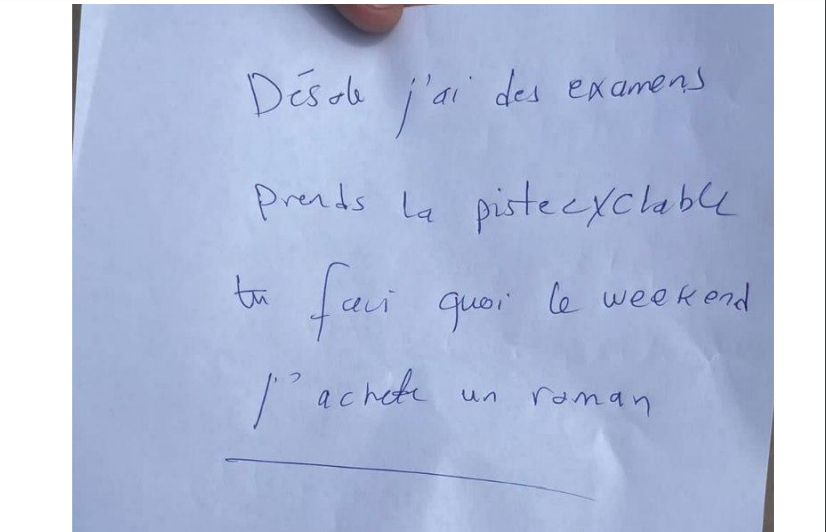 Désole j'ai des examens
Prends la piste cyclable
tu fai quoi le weekend
j'achete un roman